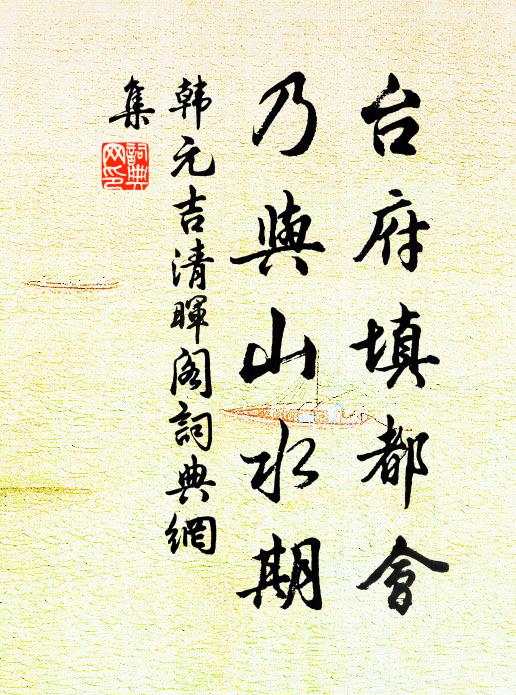 台府填都會
乃與山水期
韩元吉清暉阁詞典網
集
詞典網印